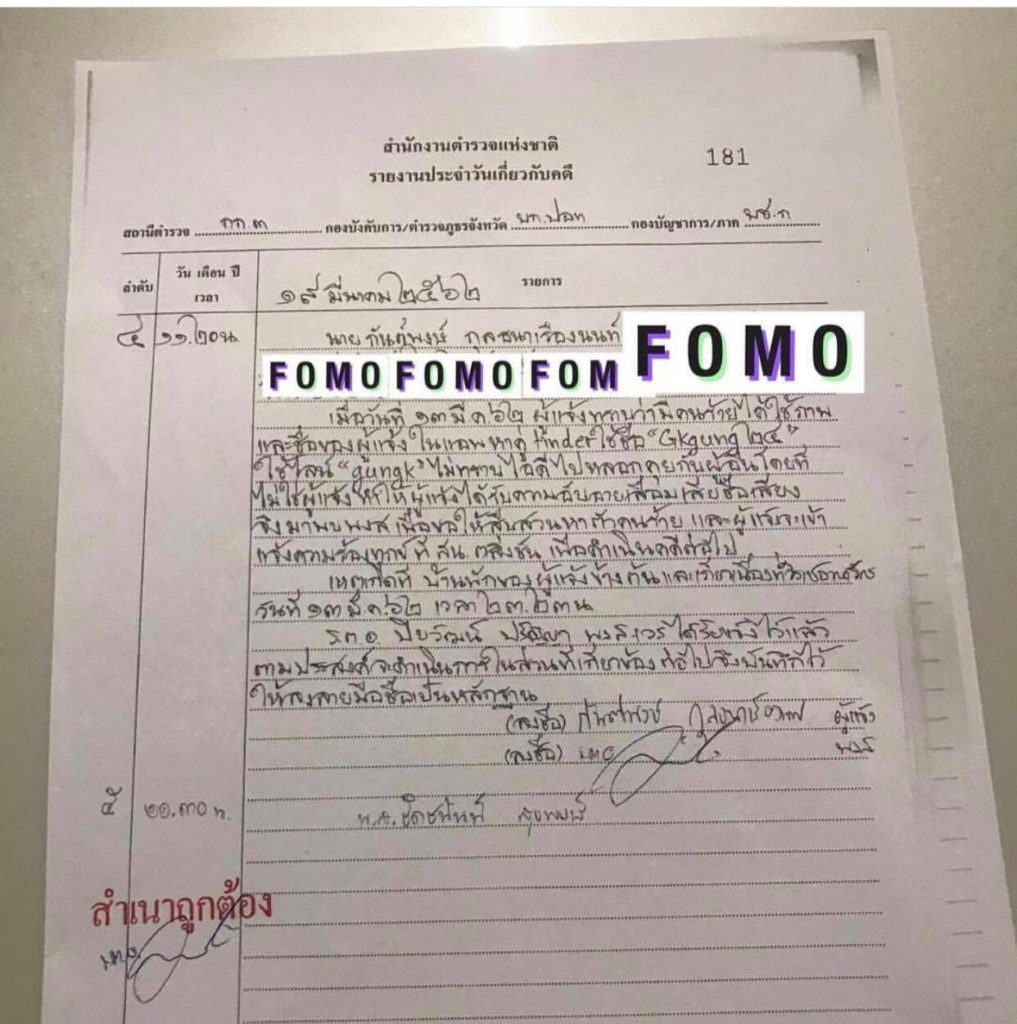 สำนักงานตำรวจแห่งชาติ
181
รายงานประจำวันเกี่ยวกับคดี
สถานีตำรวจ กก.๓ กองบังคับการ/ตำรวจภูธรจังหวัด บก.ปอท กองบัญชาการ/ภาค บช.ก
ลำดับ วัน เดือน ปี เวลา รายการ
๑๙ มีนาคม ๒๕๖๒
๔ ๑๑.๒๐น. นาย กันต์พงษ์ กุลธนาเรืองนนท์ FOMO
FOMO FOMO FOM
เมื่อวันที่ ๑๓ มี.ค.๖๒ ผู้แจ้งทราบว่ามีคนร้ายได้ใช้ภาพ
และชื่อของผู้แจ้ง ในแอพหาคู่ tinder ใช้ชื่อ "Gkgung ๒๕"
ใช้ไลน์ "gungk" ไม่ทราบไอดี ไปหลอกคุยกับผู้อื่นโดยที่
ไม่ใช่ผู้แจ้ง ทำให้ผู้แจ้งได้รับความอับอายเสื่อมเสียชื่อเสียง
จึงมาพบ พงส เพื่อขอให้สืบสวนหาตัวคนร้าย และผู้แจ้งจะเข้า
แจ้งความร้องทุกข์ ที่ สน. ตลิ่งชัน เพื่อดำเนินคดีต่อไป
เหตุเกิดที่ บ้านพักของผู้แจ้งข้างต้น และเกี่ยวเนื่องทั่วราชอาณาจักร
วันที่ ๑๓ มี.ค.๖๒ เวลา ๒๓.๒๓น
ร.ต.อ. ปิยวัฒน์ ปรัญญา พงส.เวร ได้รับแจ้งไว้แล้ว
ตามประสงค์ จะดำเนินการในส่วนที่เกี่ยวข้อง ต่อไป จึงบันทึกไว้
ให้ลงลายมือชื่อเป็นหลักฐาน
(ลงชื่อ) ผู้แจ้ง
(ลงชื่อ) พงส
๕ ๒๑.๓๐ น.
สำเนาถูกต้อง